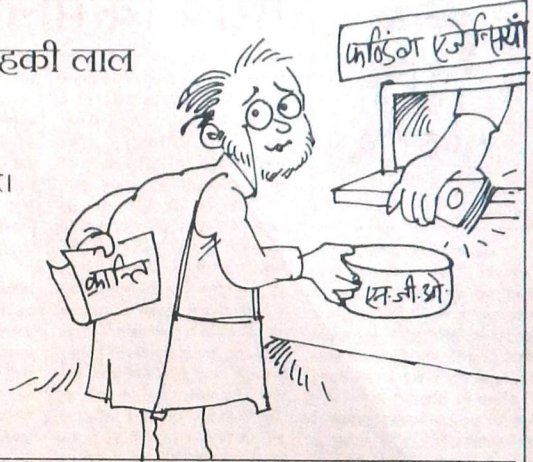 हकी लाल
फण्डिंग एजेन्सियाँ
क्रान्ति
एन.जी.ओ.